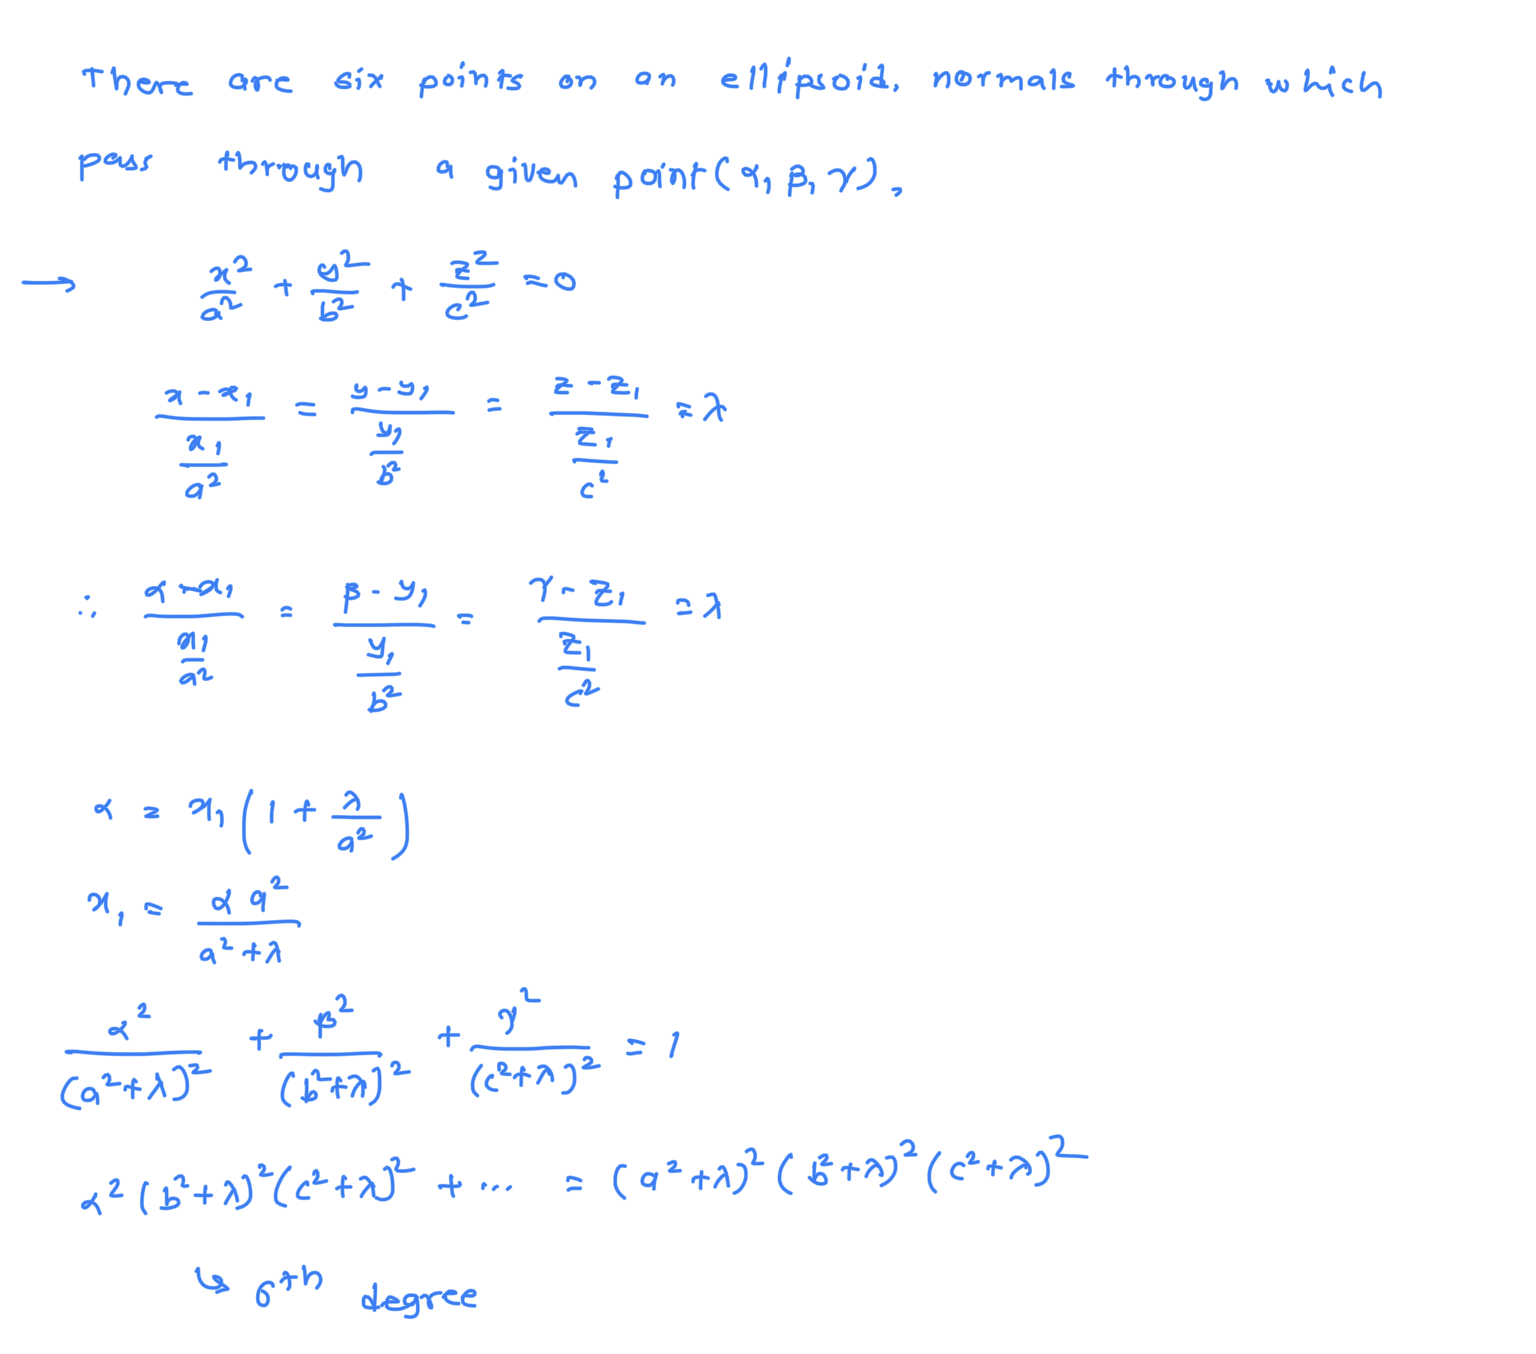 There are six points on an ellipsoid, normals through which
pass through a given point (α, β, γ),
→ x²/a² + y²/b² + z²/c² = 0
(x - x₁)/(x₁/a²) = (y - y₁)/(y₁/b²) = (z - z₁)/(z₁/c²) = λ
∴ (α - x₁)/(x₁/a²) = (β - y₁)/(y₁/b²) = (γ - z₁)/(z₁/c²) = λ
α = x₁(1 + λ/a²)
x₁ = αa²/(a² + λ)
α²/(a² + λ)² + β²/(b² + λ)² + γ²/(c² + λ)² = 1
α²(b² + λ)²(c² + λ)² + ... = (a² + λ)²(b² + λ)²(c² + λ)²
↳ 6th degree